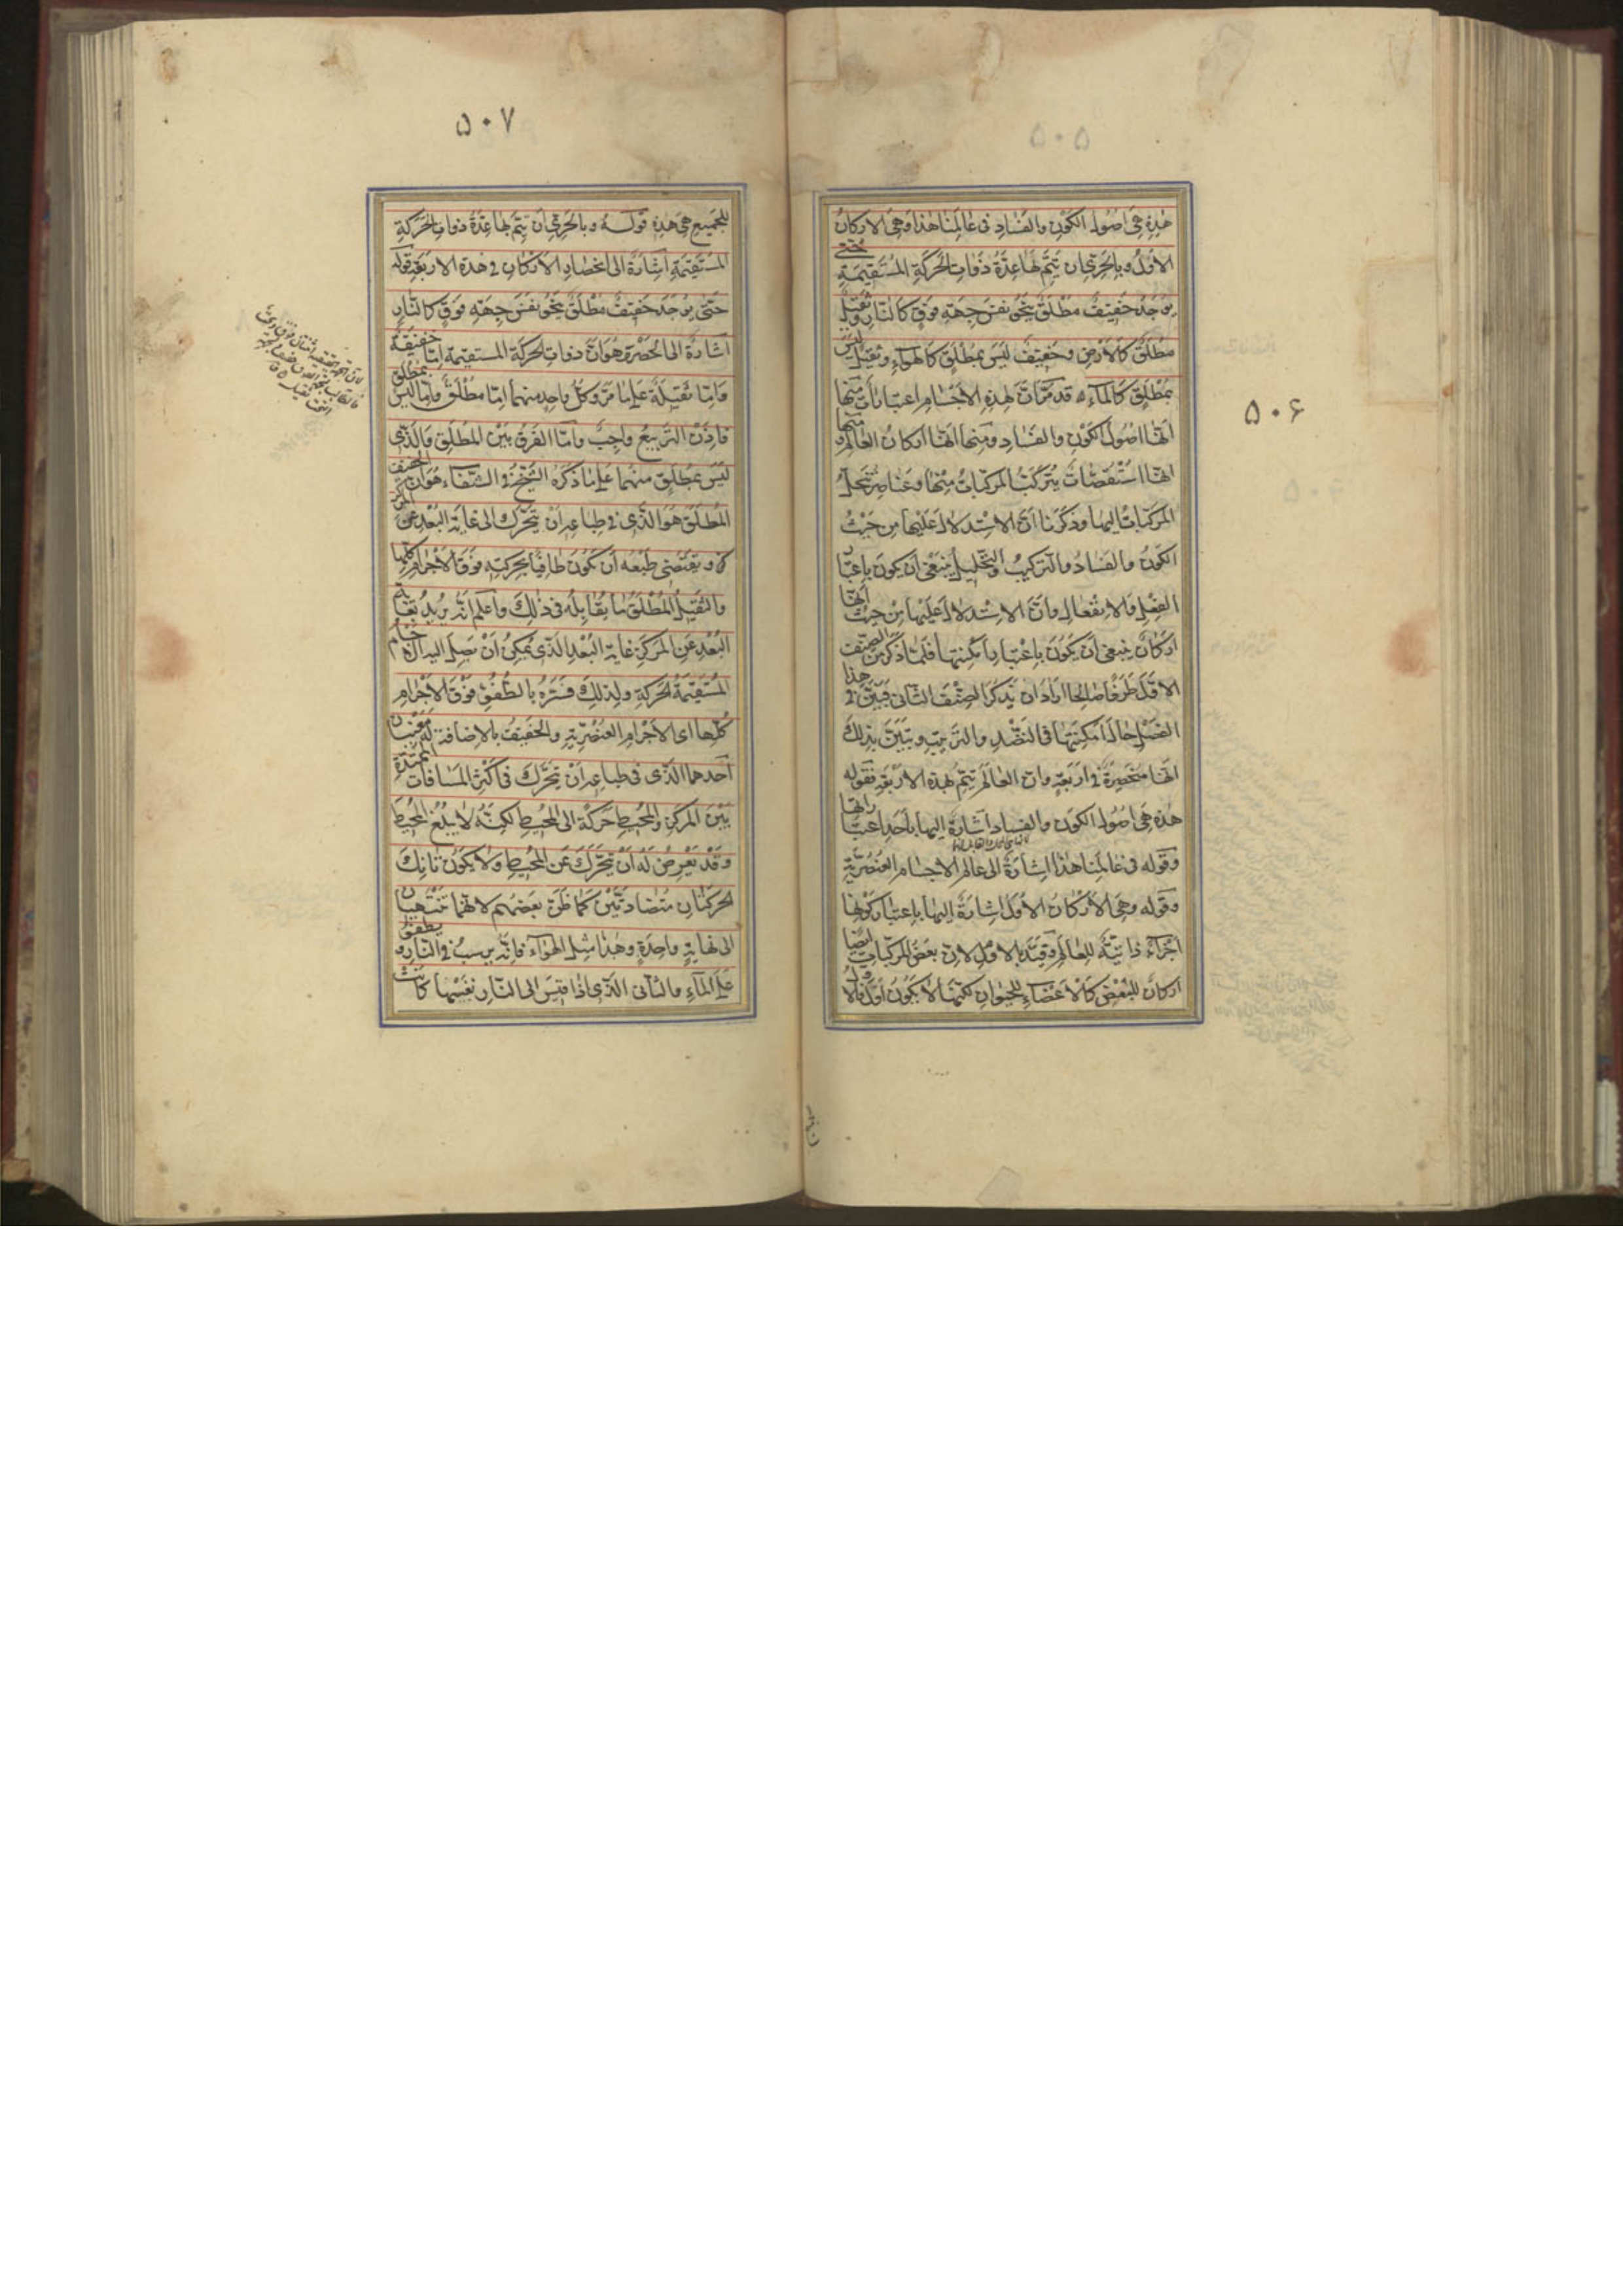 ۵۰۶
هذه هى اصول الكون والفساد فى عالمنا هذا وهى الاركان
الاول وبالحرى ان تتم لها عدة ذوات الحركة المستقيمة حتى
يوجد خفيف مطلق ينحو نفس جهة فوق كالنار وثقيل
مطلق كالارض وخفيف ليس بمطلق كالهواء وثقيل ليس
بمطلق كالماء ه قد مر ان لهذه الاجسام اعتبارات منها
انها اصول الكون والفساد ومنها انها اركان العالم ومنها
انها استقصات يتركب المركبات منها وعناصر تنحل
المركبات اليها وذكرنا ان الاستدلال عليها من حيث
الكون والفساد والتركيب والتحليل ينبغى ان يكون باعتبار
الفعل والانفعال وان الاستدلال عليها من حيث انها
اركان ينبغى ان يكون باعتبار امكنتها فلما ذكر من الصنف
الاول طرفا صالحا اراد ان يذكر الصنف الثانى فبين فى هذا
الفصل حال امكنتها فى النضد والترتيب وتبين بذلك
انها منحصرة فى اربعة وان العالم تتم بهذه الاربعة فقوله
هذه هى اصول الكون والفساد اشارة اليها باحد اعتباراتها
وقوله فى عالمنا هذا اشارة الى عالم الاجسام العنصرية
وقوله وهى الاركان الاول اشارة اليها باعتبار كونها
اجزاء ذاتية للعالم وقيد بالاول لان بعض المركبات ايضا
اركان للبعض كالاعضاء للحيوان لكنها لا يكون اول فالاول
۵۰۷
للجميع هى هذه قوله وبالحرى ان تتم لها عدة ذوات الحركة
المستقيمة اشارة الى انحصار الاركان فى هذه الاربعة قوله
حتى يوجد خفيف مطلق ينحو نفس جهة فوق كالنار
اشارة الى الحصر وهو ان ذوات الحركة المستقيمة اما خفيفة
واما ثقيلة على ما مر وكل واحد منهما اما مطلق واما ليس بمطلق
فاذن التربيع واجب واما الفرق بين المطلق والذى
ليس بمطلق منهما على ما ذكره الشيخ فى الشفاء هو ان الخفيف
المطلق هو الذى فى طباعه ان يتحرك الى غاية البعد عن المركز
ويقتضى طبعه ان يكون طافيا بحركته فوق الاجرام كلها
والثقيل المطلق ما يقابله فى ذلك واعلم انه يريد بغاية
البعد عن المركز غاية البعد الذى يمكن ان يصل اليه الاجسام
المستقيمة الحركة ولذلك فسره بالطفو فوق الاجرام
كلها اى الاجرام العنصرية والخفيف بالاضافة له معنيان
احدهما الذى فى طباعه ان يتحرك فى اكثر المسافات الممتدة
بين المركز والمحيط حركة الى المحيط لكنه لا يبلغ المحيط
وقد يعرض له ان يتحرك عن المحيط ولا يكون تانك
الحركتان متضادتين كما ظن بعضهم لانهما تنتهيان
الى نهاية واحدة وهذا مثل الهواء فانه يرسب فى النار ويطفو
على الماء والثانى الذى اذا قيس الى النار نفسها كانت